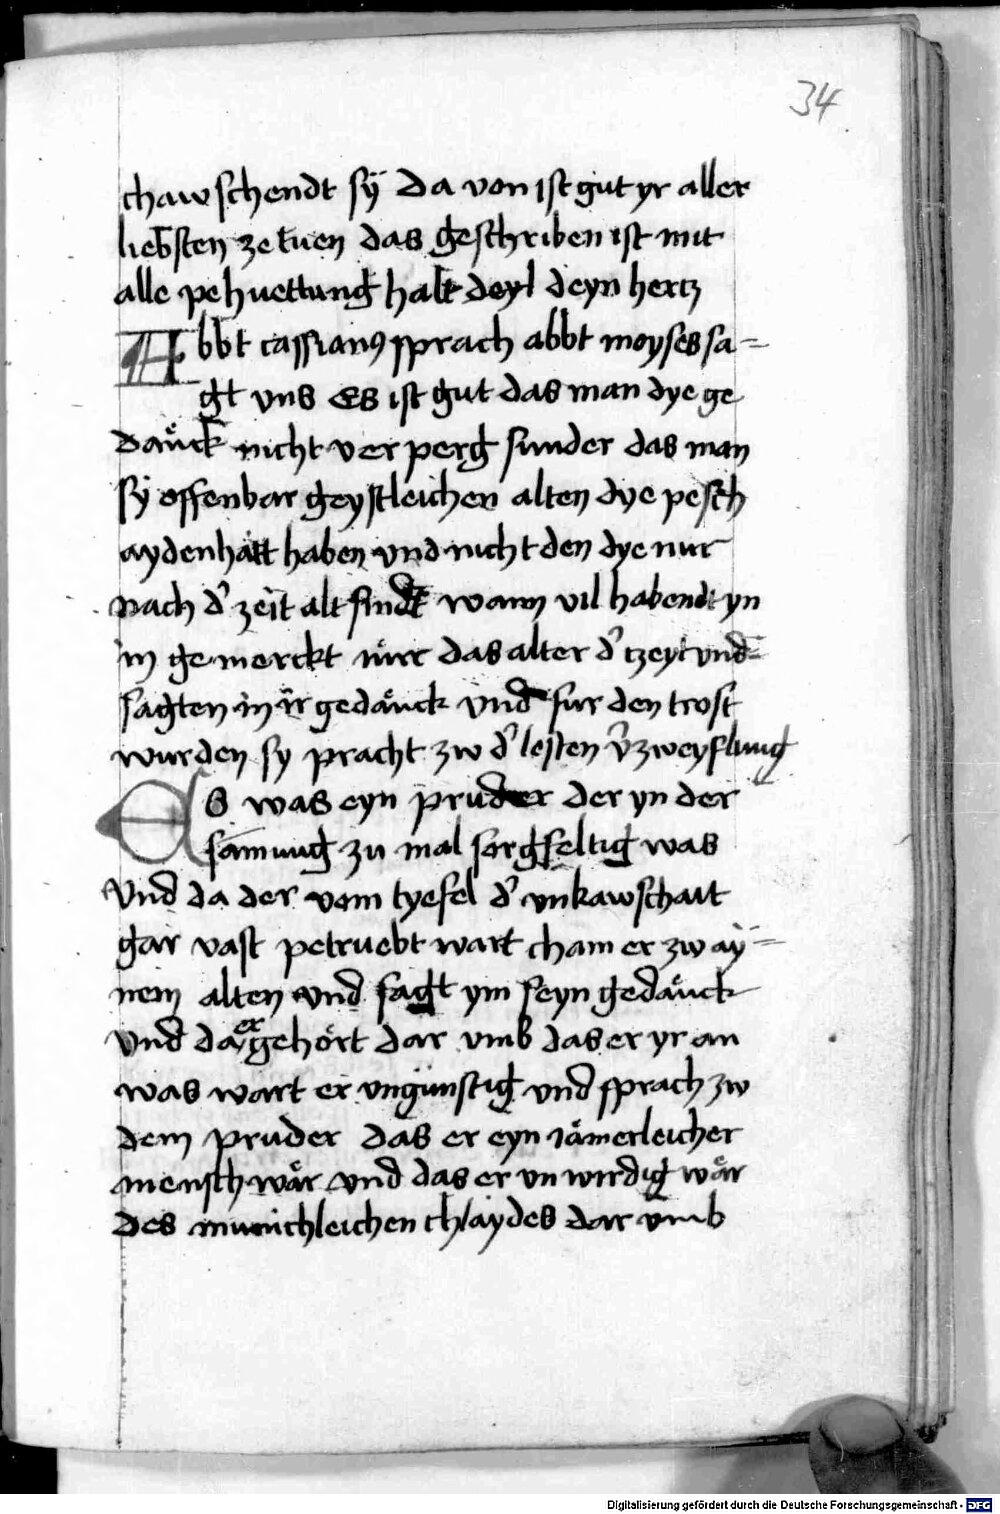 34
chawschendt sÿ Da von ist gut yr aller
liebsten ze tuen das geschriben ist mit
alle pehuettung halt deyn hertz
Abbt cassianꝰ sprach abbt moyses sa=
gt vns Es ist gut das man dye ge
däuck nicht ver perg sunder das man
sÿ offenbar geystleichen alten dye pesch
aydenhaitt haben vnd nicht den dye nur
nach d' zeit alt sindt wann vil habendt yn
in ge merckt nur das alter d' tzeyt vnd=
sagten in ir gedäuck vnd fur den trost
wurden sy pracht zw d' lesten v̾zweyflung
Es was eyn pruder der yn der
samung zu mal sorgfeltig was
Vnd da der vom tyefel d' vnkawschait
gar vast petruebt wart cham er zw aÿ=
nem alten vnd sagt ym seyn gedäuck
Vnd da er gehört dar vmb das er yr an
was wart er vngunstig vnd sprach zw
dem pruder das er eyn iämerleicher
mensch wär vnd das er vn wirdig wär
des munichleichen chlaydes dar vmb
Digitalisierung gefördert durch die Deutsche Forschungsgemeinschaft - DFG